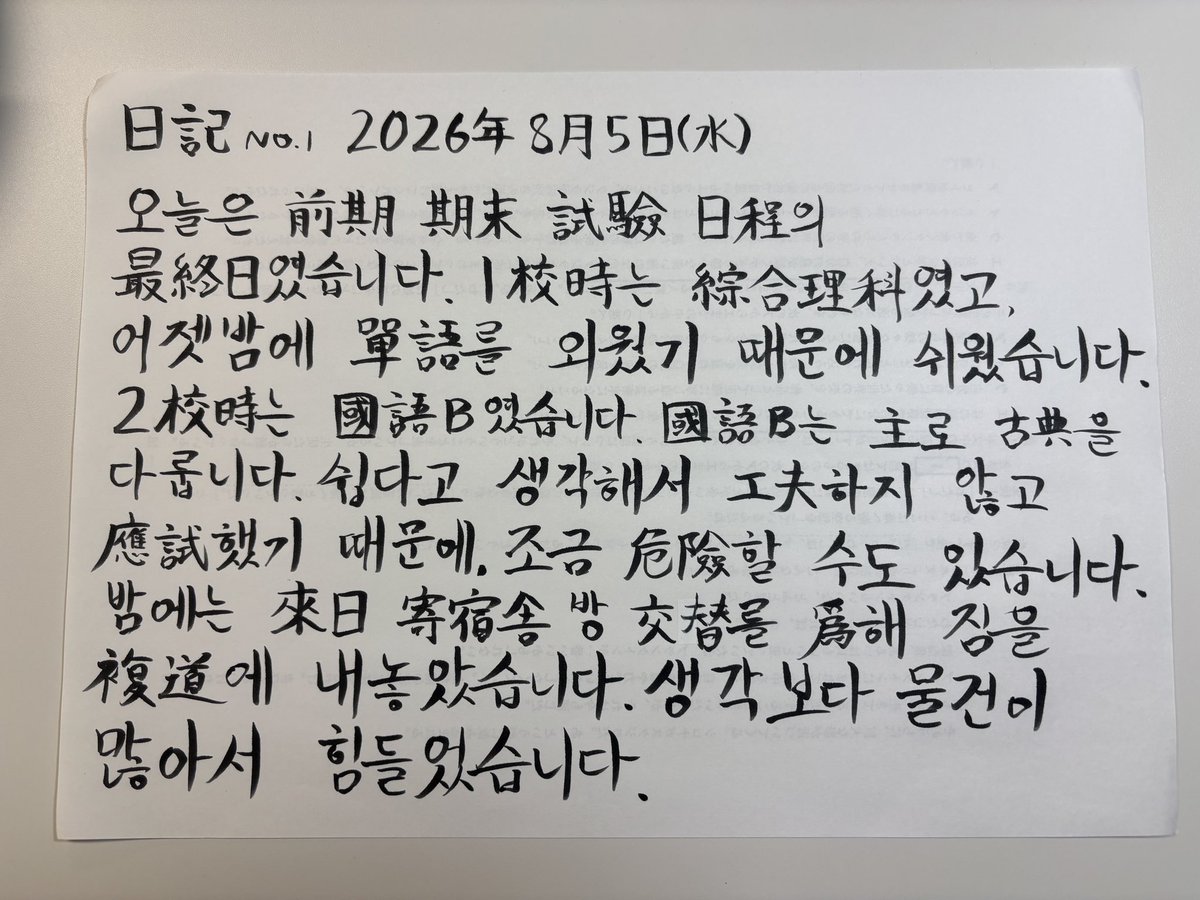 日記 No.1 2026年 8月 5日(水)
오늘은 前期 期末 試驗 日程의
最終日였습니다. 1校時는 綜合理科였고,
어젯밤에 單語를 외웠기 때문에 쉬웠습니다.
2校時는 國語B였습니다. 國語B는 主로 古典을
다룹니다. 쉽다고 생각해서 工夫하지 않고
應試했기 때문에, 조금 危險할 수도 있습니다.
밤에는 來日 寄宿舍 방 交替를 爲해 짐을
複道에 내놓았습니다. 생각보다 물건이
많아서 힘들었습니다.